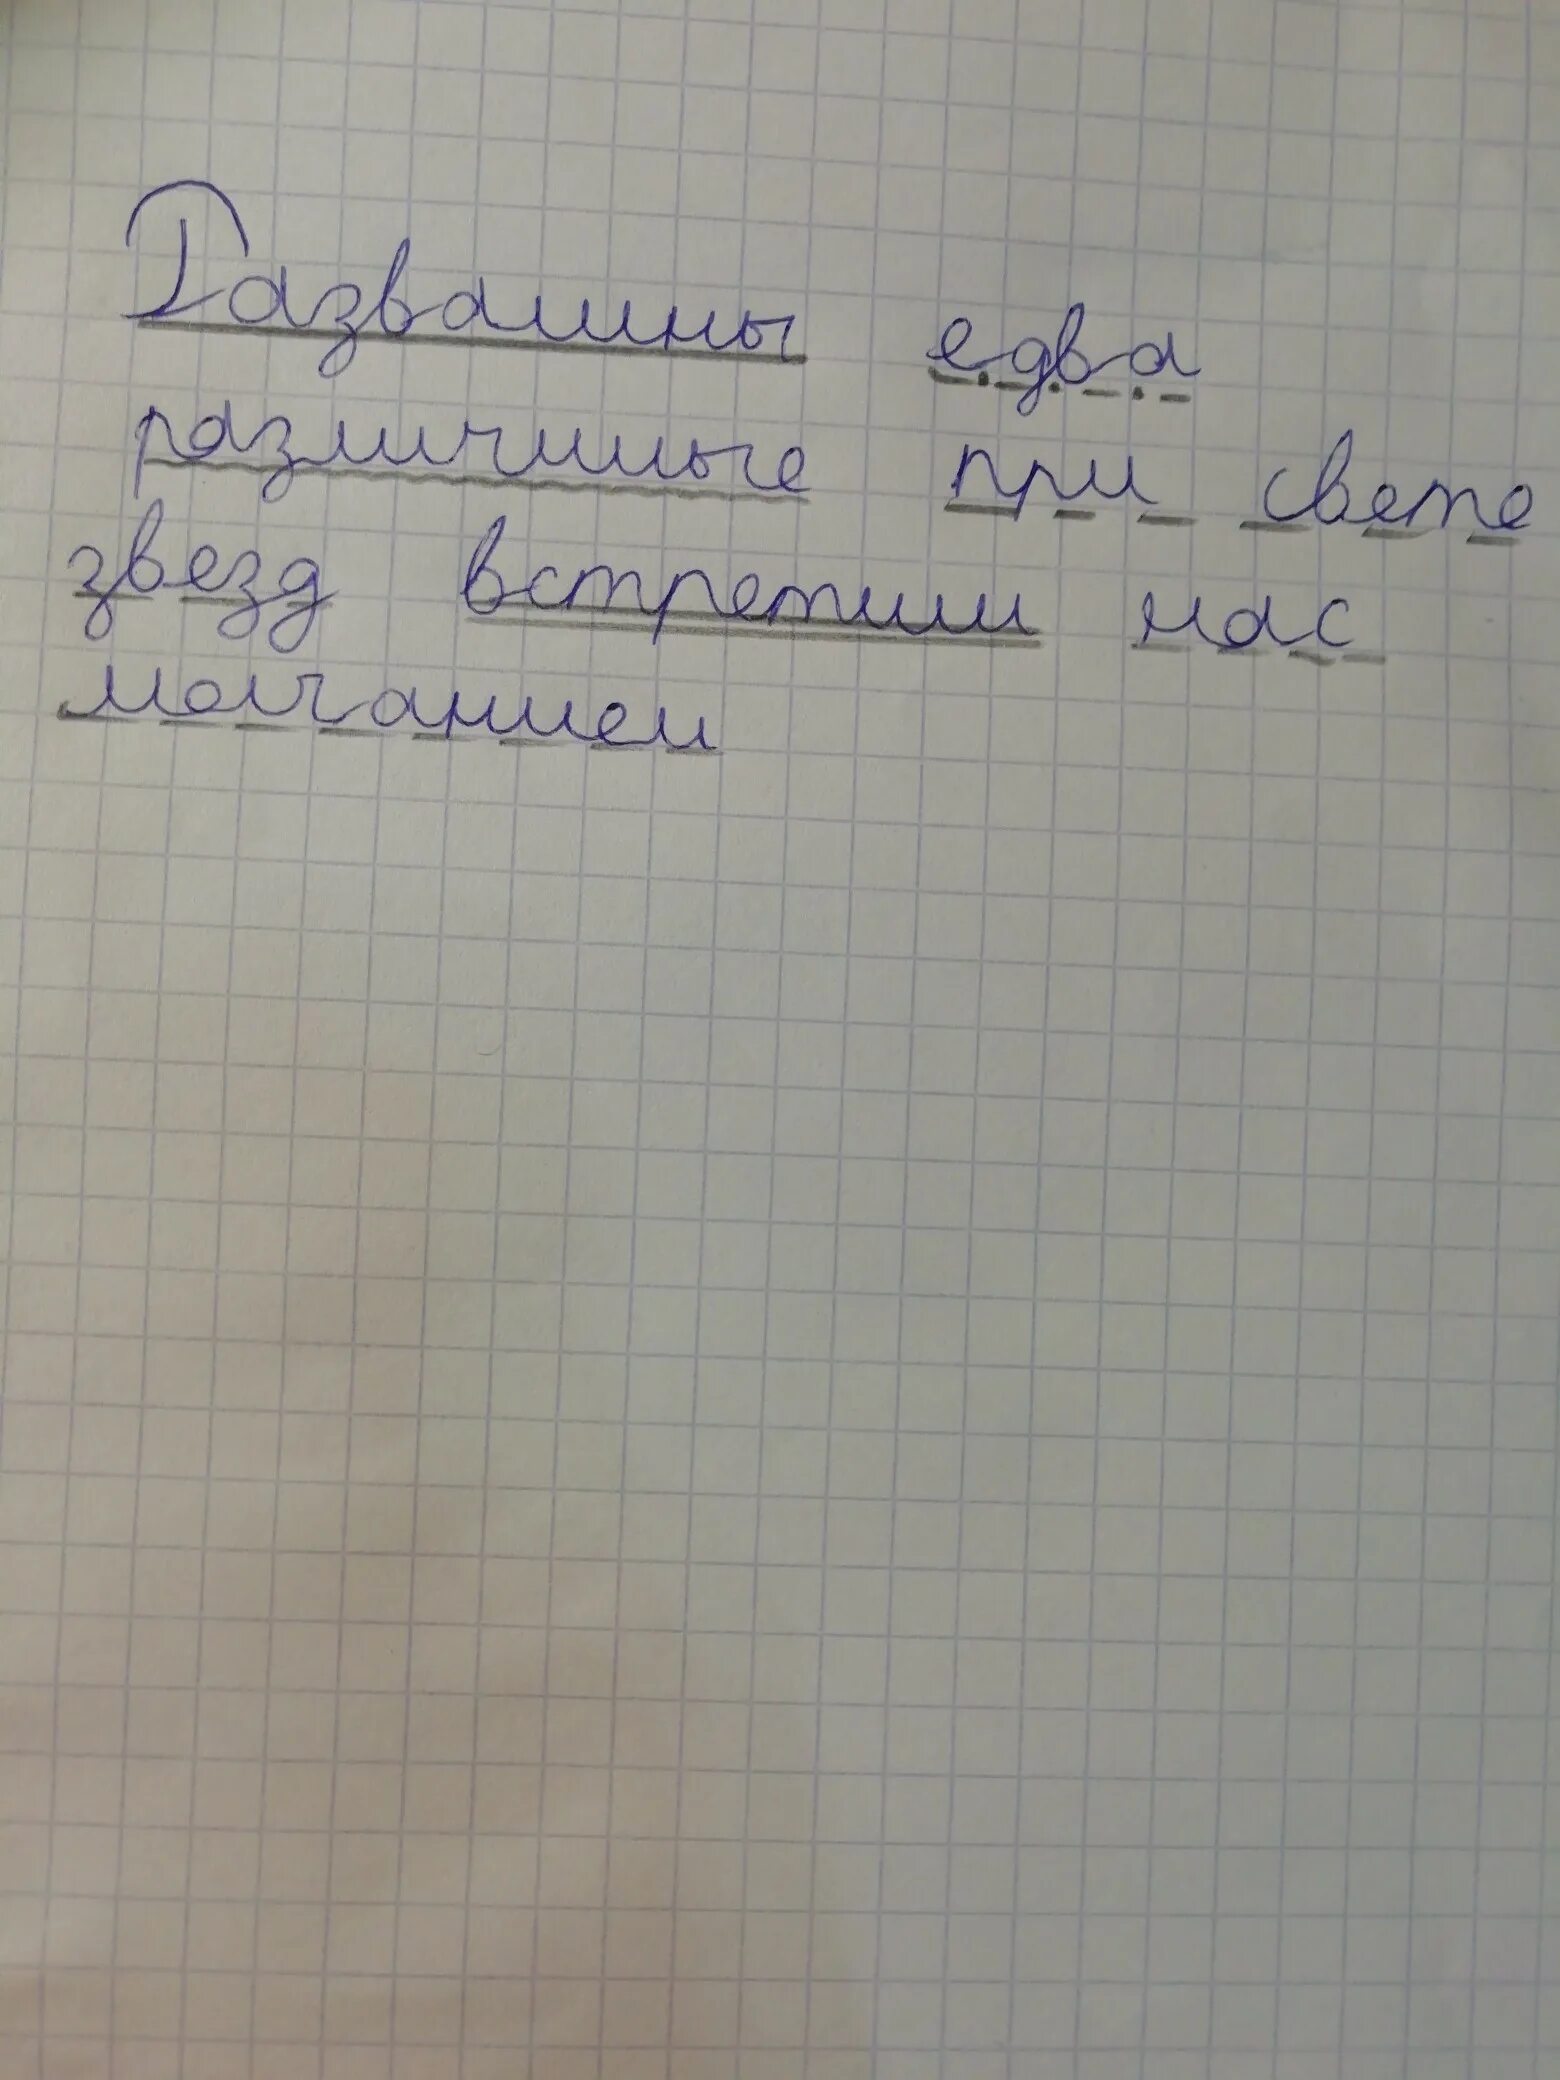 Развалины едва
различимые при свете
звезд встретили нас
молчанием